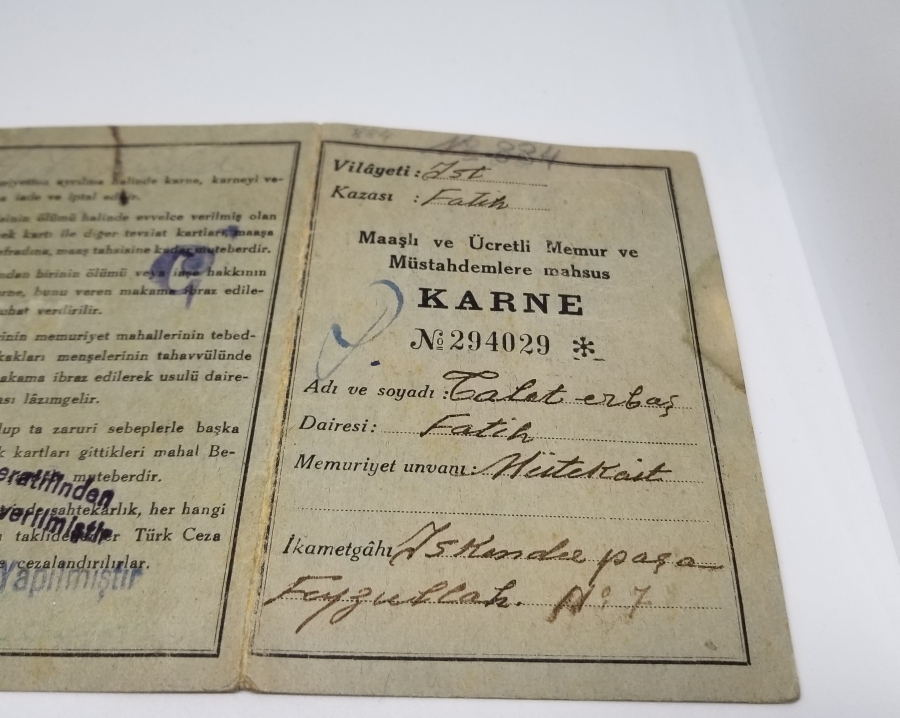 halinde karne, karneyi ve-
iade ve iptal edilir.
ölümü halinde evvelce verilmiş olan
kartı ile diğer tevziat kartları, maaşa
maaş tahsisine kadar muteberdir.
birinin ölümü veya iaşe hakkının
bunu veren makama ibraz edile-
verdirilir.
memuriyet mahallerinin tebed-
menşelerinin tahavvülünde
ibraz edilerek usulü daire-
lâzımgelir.
ta zaruri sebeplerle başka
kartları gittikleri mahal Be-
muteberdir.
sahtekârlık, her hangi
Türk Ceza
cezalandırılırlar.
verilmiştir
Yapılmıştır
884
No 884
Vilâyeti : İst
Kazası : Fatih
Maaşlı ve Ücretli Memur ve
Müstahdemlere mahsus
KARNE
№ 294029 *
Adı ve soyadı : Talat erbaş
Dairesi : Fatih
Memuriyet unvanı : Mütekait
İkametgâhı İskender paşa
Feyzullah. No 7